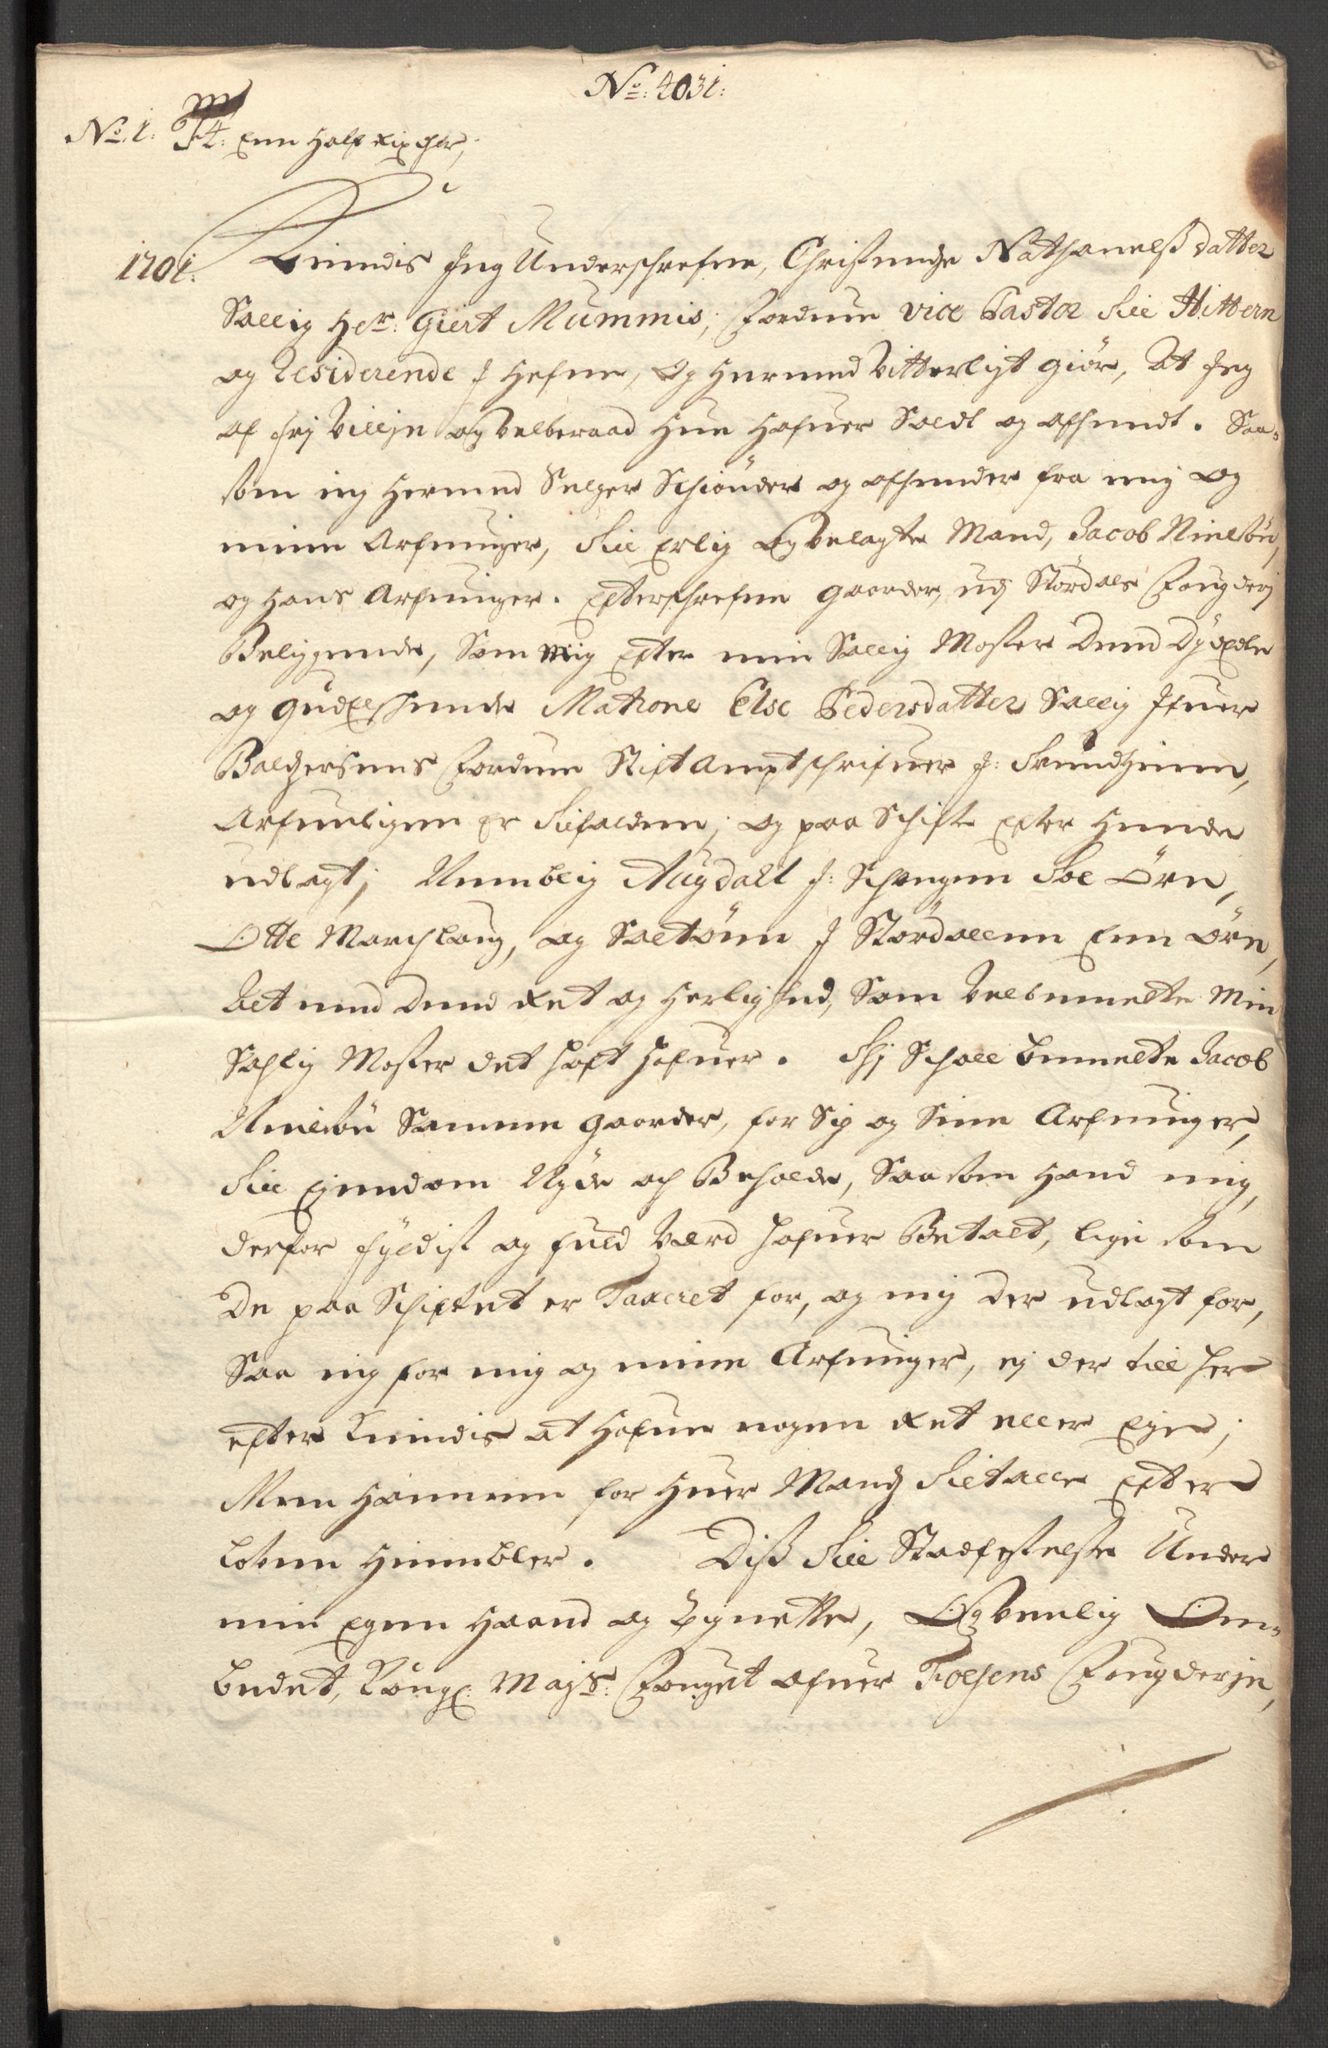 No: 4031:
No. 1: F4: Enn Half Rixdlr,
1701. Kiendis Jeg Underschrefne, Christendze Nathanelß datter
Sallig Her: Giert Mummis, Fordum vice Pastor till Hittern
og Residerende J Hefne, Og Hermed vitterligt giör, At Jeg
af frj villje og velberaad Hue Hafuer Soldt og afhendt. Saa-
som ieg Hermed Selger Schiönder og afhender fra mig og
mine Arfuinger, till Erlig og velagte Mand, Jacob Nielsön,
og Hans Arfuinger. Efterschrefne gaarder, udj Stördals Fougderj
Beliggende, Som Mig Efter min Sallig Moster Dend Dydædle
og gudelschende Matrone Else Pedersdatter Sallig Jfuer
Baldzersens Fordum Stiftamptschrifuer J: Trundhiem,
Arfueligen er tilfalden, og paa Schifte Efter Hende
udlagt, Nemblig Augdall J: Schongen Toe Örn,
Otte Marchlaug, og Saltönn J Stördallenn Enn örn,
Alt med Dend Ret og Herlighed, Som velbemelte Min
Sahlig Moster det haft hafuer. Thj Schall bemelte Jacob
Nielsön Samme gaarder, for Sig og Sine Arfuinger,
till Eyendom Nyde och Beholde, Saasom Hand mig,
derfor fyldist og fuld Værd hafuer Betalt, lige som
De paa Schiftet er Taxeret for, og mig der udlagt for,
Saa ieg for mig og mine Arfuinger, ej der till her
efter Kiendis at Hafue nogen Ret eller Eje;
Men Hannem for Huer Mands tiltalle Efter
loven Hiembler. Diß till Stadfestelse Under
min Egen Haand og Signette, Og venlig Om-
bedet, Kongl: Mayts: Fouget ofuer Foesens Fougderje,